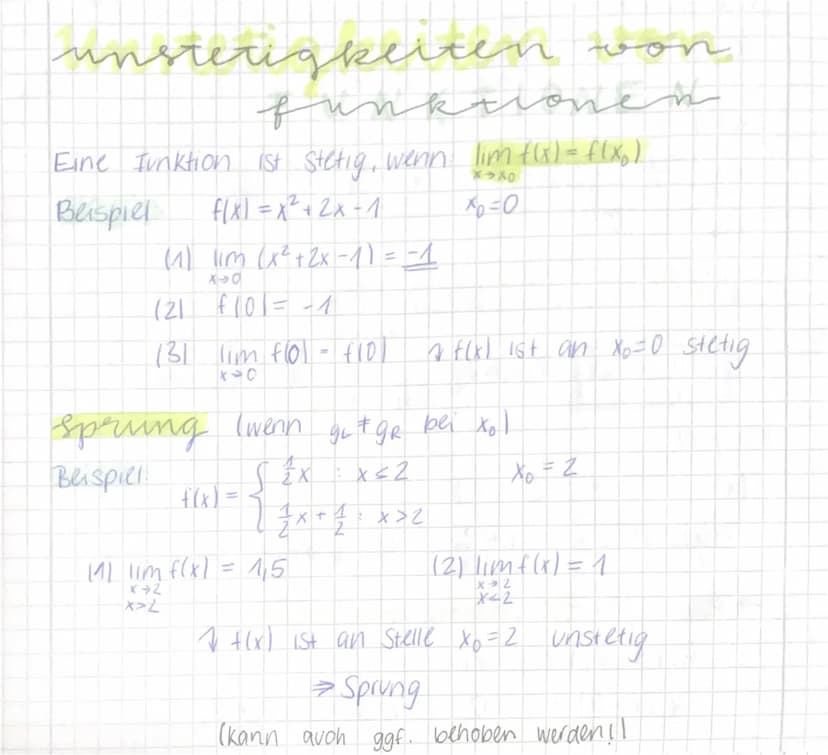 Unstetigkeiten von
Funktionen
Eine Funktion ist stetig, wenn lim f(x) = f(x₀)
x→x₀
Beispiel f(x) = x² + 2x - 1 x₀ = 0
(1) lim (x² + 2x - 1) = -1
x→0
(2) f(0) = -1
(3) lim f(0) = f(0) ↯ f(x) ist an x₀=0 stetig
x→0
Sprung (wenn gL ≠ gR bei x₀)
Beispiel f(x) = { ½x : x ≤ 2 x₀ = 2
½x + ½ : x > 2
(1) lim f(x) = 1,5 (2) lim f(x) = 1
x→2 x→2
x>2 x<2
↯ f(x) ist an Stelle x₀ = 2 unstetig
⇒ Sprung
(kann auch ggf. behoben werden!)